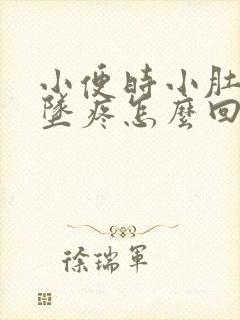 小便時小肚
墜疼怎麼回
徐瑞軍